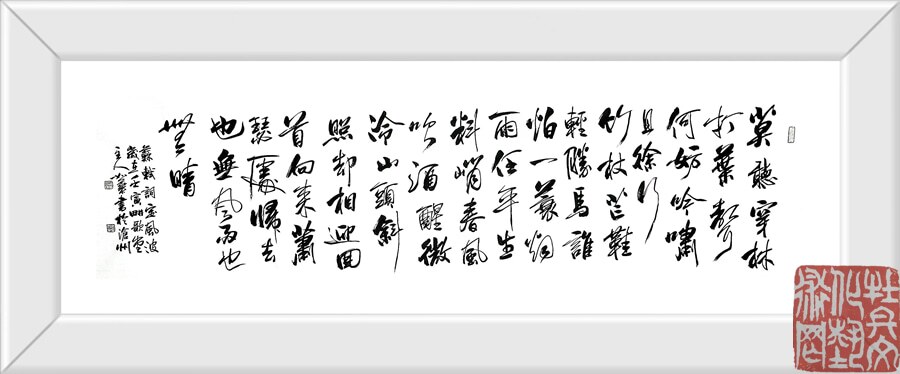 莫聽穿林
打葉聲
何妨吟嘯
且徐行
竹杖芒鞋
輕勝馬誰
怕一蓑烟
雨任平生
料峭春風
吹酒醒微
冷山頭斜
照却相迎回
首向来蕭
瑟處歸去
也無風雨也
無晴
蘇軾詞定風波
歲在壬寅
主人書於滄州
杜兵文
化藝
術网